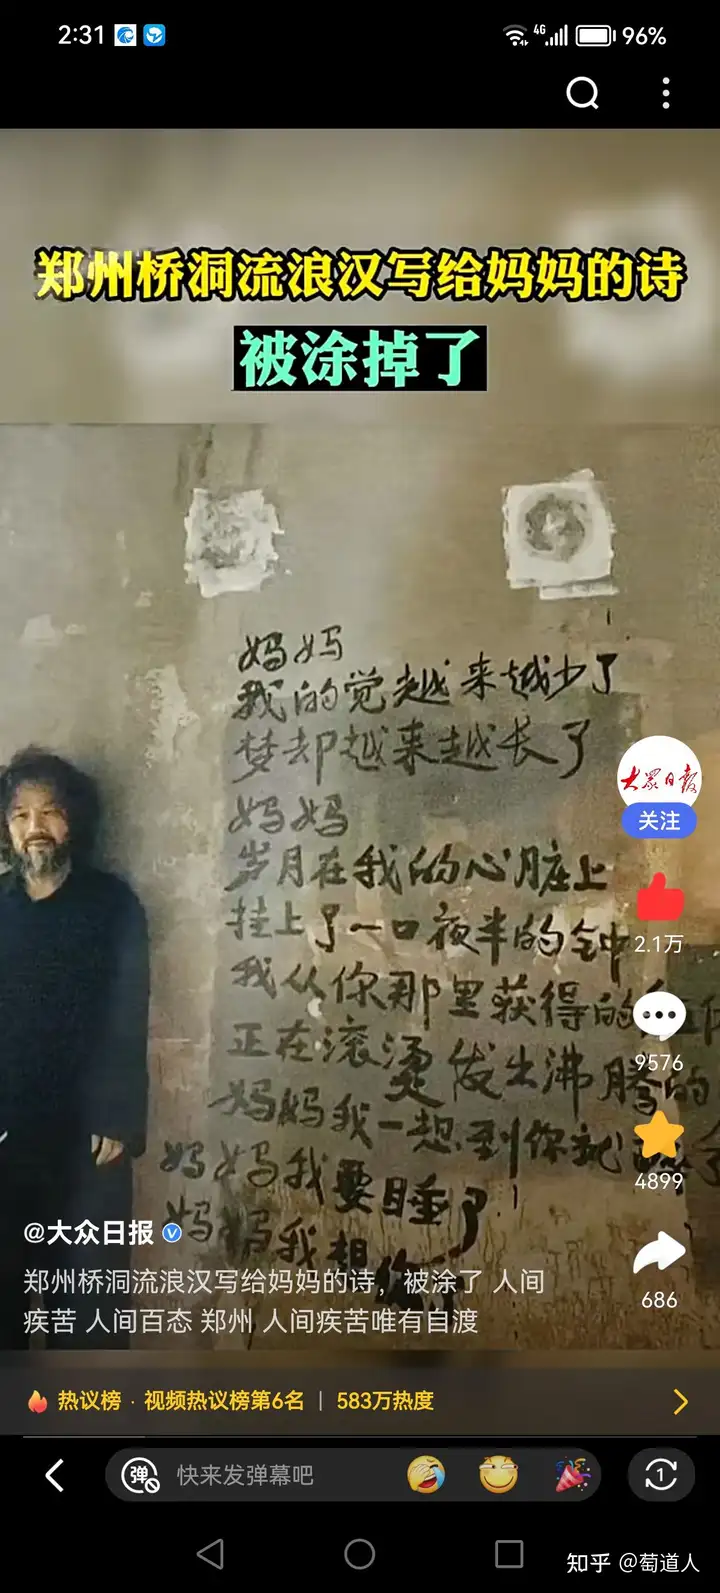 2:31
4G
96%
郑州桥洞流浪汉写给妈妈的诗
被涂掉了
妈妈
我的觉越来越少了
梦却越来越长了
妈妈
岁月在我的心脏上
挂上了一口夜半的钟
我从你那里获得的
正在滚烫发出沸腾的
妈妈我一想到你就
妈妈我要睡了
妈妈我想你
大众日报
关注
2.1万
9576
4899
686
@大众日报
郑州桥洞流浪汉写给妈妈的诗，被涂了 人间
疾苦 人间百态 郑州 人间疾苦唯有自渡
热议榜 · 视频热议榜第6名 | 583万热度
弹
快来发弹幕吧
1
知乎 @蜀道人